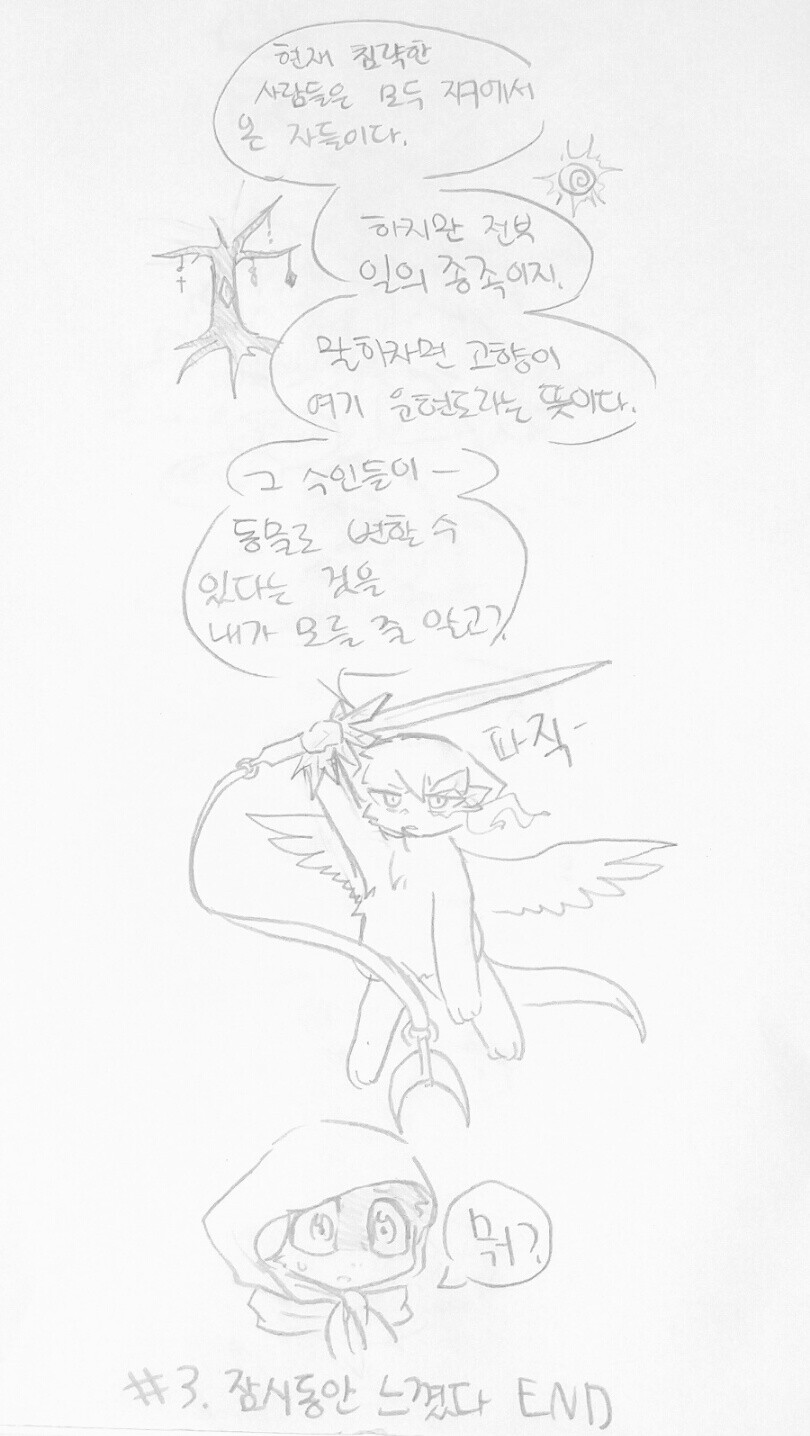 현재 침략한
사람들은 모두 져에서
온 자들이다.
하지만 전부
일의 종족이지.
말하자면 고향이
여기 운현도라는 뜻이다.
그 수인들이 -
동물로 변할 수
있다는 것을
내가 모를 줄 알고?
파직-
뭐?
#3. 잠시동안 느꼈다 END